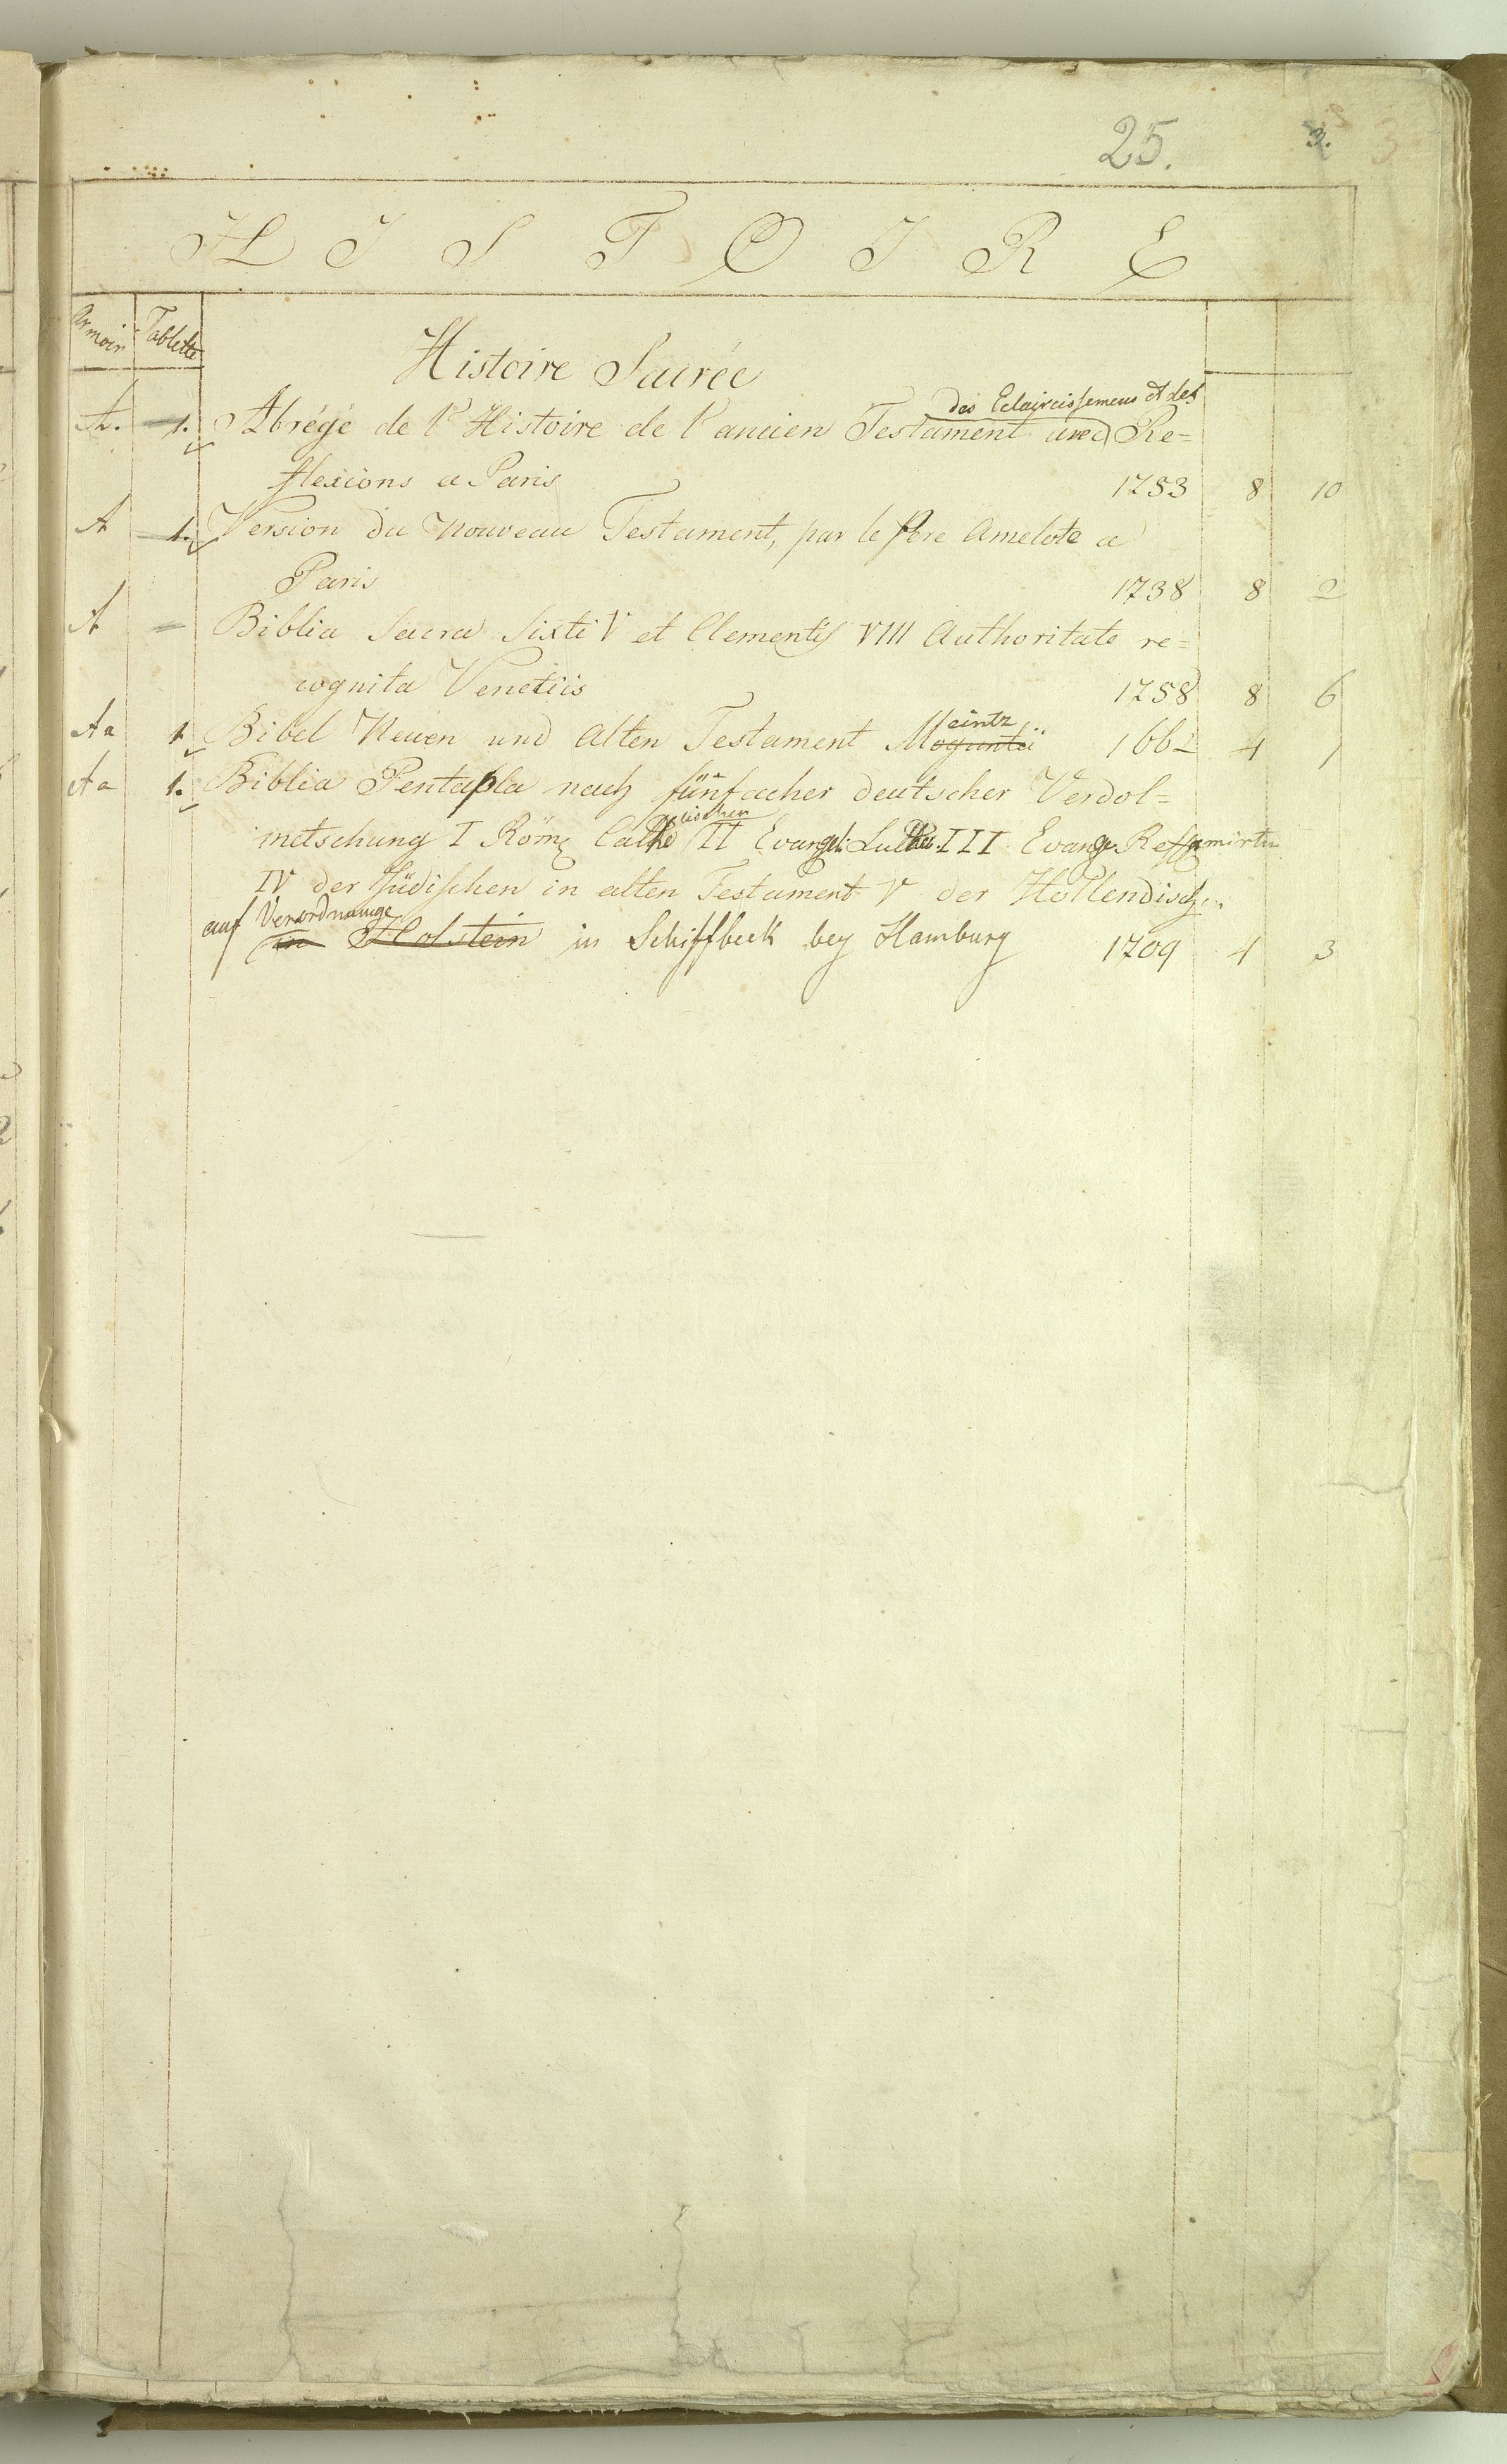 25. 3. 3
HISTOIRE
Armoir Tablette
Histoire Sacrée
des Eclaircissemens et des
A. 1. Abrégé de l'Histoire de l'ancien Testament avec Re=
flexions a Paris 1753 8 10
A 1. Version du Nouveau Testament, par le Pere Amelote a
Paris 1738 8 2
A Biblia Sacra Sixti V et Clementis VIII Authoritate re=
cognita Venetiis 1758 8 6
eintz
Aa 1 Bibel Neuen und Alten Testament Moguntii 1662 4 1
Aa 1. Biblia Pentapla nach fünfacher deutscher Verdol=
lischen
metschung I Röm Catho II Evangeli: Luther. III Evang. Reformirtn
IV der Jüdischen in alten Testament V der Hollendisch.
auf Verordnunge
in Holstein in Schiffbeck bey Hamburg 1709 4 3